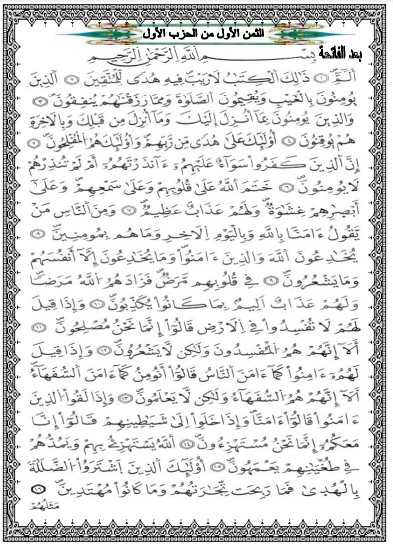 الثمن الأول من الحزب الأول
بعد الفاتحة بِسْمِ اللَّهِ الرَّحْمَٰنِ الرَّحِيمِ
أَلَمِّ ذَٰلِكَ اَلْكِتَٰبُ لَا رَيْبَ فِيهِ هُدىً لِّلْمُتَّقِينَ اَلذِينَ
يُومِنُونَ بِالْغَيْبِ وَيُقِيمُونَ اَلصَّلَوٰةَ وَمِمَّا رَزَقْنَٰهُمْ يُنفِقُونَ
وَالذِينَ يُومِنُونَ بِمَا أُنزِلَ إِلَيْكَ وَمَا أُنزِلَ مِن قَبْلِكَ وَبِالَاخِرَةِ
هُمْ يُوقِنُونَ أُوْلَٰئِكَ عَلَىٰ هُدىً مِّن رَّبِّهِمْ وَأُوْلَٰئِكَ هُمُ اُلْمُفْلِحُونَ
إِنَّ اَلذِينَ كَفَرُواْ سَوَآءٌ عَلَيْهِمُ ءَآنذَرْتَهُمُ أَمْ لَمْ تُنذِرْهُمْ
لَا يُومِنُونَ خَتَمَ اَللَّهُ عَلَىٰ قُلُوبِهِمْ وَعَلَىٰ سَمْعِهِمْ وَعَلَىٰ
أَبْصَٰرِهِمْ غِشَٰوَةٌ وَلَهُمْ عَذَابٌ عَظِيمٌ وَمِنَ اَلنَّاسِ مَنْ
يَّقُولُ ءَامَنَّا بِاللَّهِ وَبِالْيَوْمِ اِلَاخِرِ وَمَا هُم بِمُومِنِينَ
يُخَٰدِعُونَ اَللَّهَ وَالذِينَ ءَامَنُواْ وَمَا يُخَٰدِعُونَ إِلَّا أَنفُسَهُمْ
وَمَا يَشْعُرُونَ فِي قُلُوبِهِم مَّرَضٌ فَزَادَهُمُ اُللَّهُ مَرَضاً
وَلَهُمْ عَذَابٌ اَلِيمٌ بِمَا كَانُواْ يُكَذِّبُونَ وَإِذَا قِيلَ
لَهُمْ لَا تُفْسِدُواْ فِي اِلَارْضِ قَالُواْ إِنَّمَا نَحْنُ مُصْلِحُونَ
أَلَا إِنَّهُمْ هُمُ اُلْمُفْسِدُونَ وَلَٰكِن لَّا يَشْعُرُونَ وَإِذَا قِيلَ
لَهُمُ ءَامِنُواْ كَمَا ءَامَنَ اَلنَّاسُ قَالُواْ أَنُومِنُ كَمَا ءَامَنَ اَلسُّفَهَآءُ
اَلَا إِنَّهُمْ هُمُ اُلسُّفَهَآءُ وَلَٰكِن لَّا يَعْلَمُونَ وَإِذَا لَقُواْ اُلذِينَ
ءَامَنُواْ قَالُواْ ءَامَنَّا وَإِذَا خَلَوِاْ اِلَىٰ شَيَٰطِينِهِمْ قَالُواْ إِنَّا
مَعَكُمُ إِنَّمَا نَحْنُ مُسْتَهْزِءُونَ اَللَّهُ يَسْتَهْزِئُ بِهِمْ وَيَمُدُّهُمْ
فِي طُغْيَٰنِهِمْ يَعْمَهُونَ أُوْلَٰئِكَ اَلذِينَ اَشْتَرَوُاْ اُلضَّلَٰلَةَ
بِالْهُدَىٰ فَمَا رَبِحَت تِّجَٰرَتُهُمْ وَمَا كَانُواْ مُهْتَدِينَ
مَثَلُهُمْ